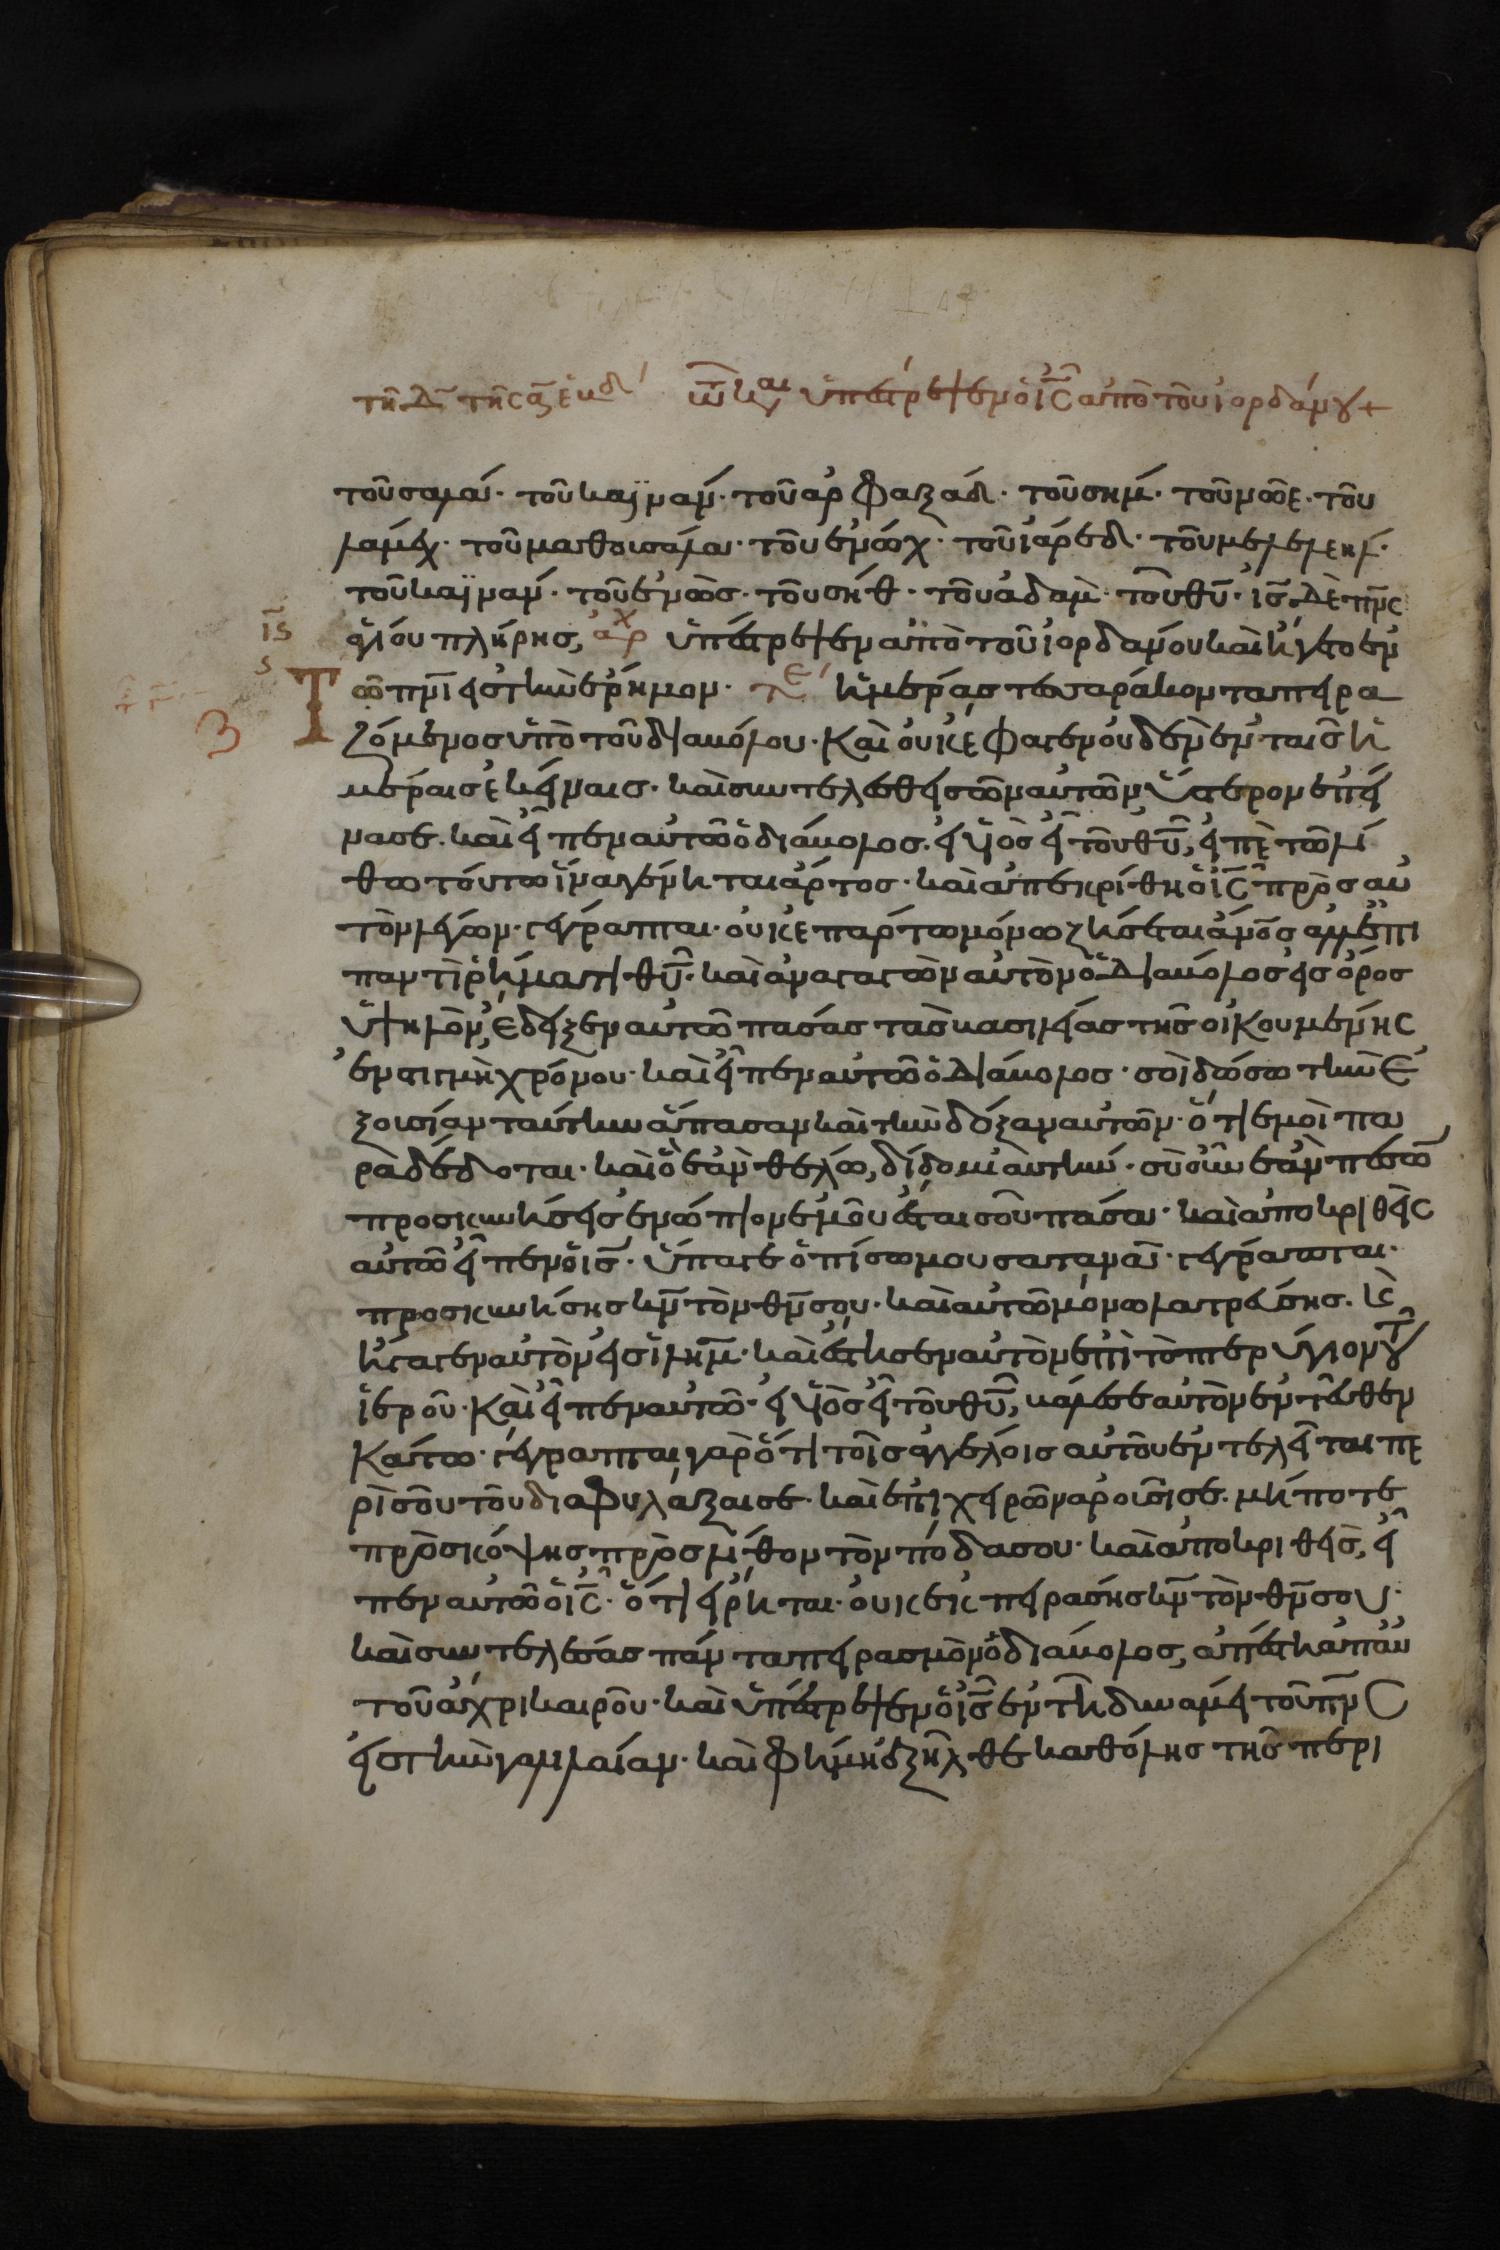 τῆ δ τῆς ϛ ἑβδ τῶ καιρ ὑπέστρεψεν ὁ ις ἀπὸ τοῦ ἰορδάνου +
τοῦ σαλά· τοῦ καϊνάν· τοῦ ἀρφαξάδ· τοῦ σήμ· τοῦ νῶε· τοῦ
λάμεχ· τοῦ μαθουσάλα· τοῦ ἐνώχ· τοῦ ἰάρεδ· τοῦ μελελεήλ·
τοῦ καϊνάν· τοῦ ἐνὼς· τοῦ σήθ· τοῦ ἀδάμ· τοῦ θυ· ις δὲ πνς
ἁγίου πλήρης, ἀρχ ὑπέστρεψεν ἀπὸ τοῦ ἰορδάνου καὶ ἤγετο ἐν
ις
ϛ
Τῶ πνι εἰς τὴν ἔρημον· τε ἡμέρας τεσσαράκοντα πειρα
ζόμενος ὑπὸ τοῦ διαβόλου· Καὶ οὐκ ἔφαγεν οὐδὲν ἐν ταῖς ἡ
μέραις ἐκείναις· καὶ συντελεσθεισῶν αὐτῶν, ὕστερον ἐπεί
νασε· καὶ εἶπεν αὐτῶ ὁ διάβολος· εἰ υἱὸς εἶ τοῦ θυ, εἰπὲ τῶ λί
θω τούτω ἵνα γένηται ἄρτος· καὶ ἀπεκρίθη ὁ ις πρὸς αὐ
τὸν λέγων· γέγραπται· οὐκ ἐπ ἄρτω μόνω ζήσεται ἄνος ἀλλ ἐπὶ
παντὶ ῥήματι θυ· καὶ ἀναγαγὼν αὐτὸν ὁ διάβολος εἰς ὄρος
ὑψηλὸν, ἔδειξεν αὐτῶ πάσας τὰς βασιλείας τῆς οἰκουμένης
ἐν στιγμῆ χρόνου· καὶ εἶπεν αὐτῶ ὁ διάβολος· σοὶ δώσω τὴν ἐ
ξουσίαν ταύτην ἅπασαν καὶ τὴν δόξαν αὐτῶν· ὅτι ἐμοὶ πα
ραδέδοται· καὶ ὧ ἐὰν θέλω, δίδωμι αὐτήν· σὺ οὖν ἐὰν πεσὼν
προσκυνήσεις ἐνώπιον ἐμοῦ ἔσται σοῦ πᾶσα· καὶ ἀποκριθεὶς
αὐτῶ εἶπεν ὁ ις· ὕπαγε ὀπίσω μου σατανᾶ· γέγραπται·
προσκυνήσης κν τὸν θν σου· καὶ αὐτῶ μόνω λατρεύσης· κὲ
ἤγαγεν αὐτὸν εἰς ιλημ· καὶ ἔστησεν αὐτὸν ἐπὶ τὸ πτερύγιον τοῦ
ἱεροῦ· Καὶ εἶπεν αὐτῶ· εἰ υἱὸς εἶ τοῦ θυ, βάλε σεαυτὸν ἐντεῦθεν
Κάτω· γέγραπται γὰρ ὅτι τοῖς ἀγγέλοις αὐτοῦ ἐντελεῖται πε
ρὶ σοῦ τοῦ διαφυλάξαι σε· καὶ ἐπι χειρῶν ἀροῦσί σε· μήποτε
προσκόψης πρὸς λίθον τὸν πόδα σου· καὶ ἀποκριθεὶς, εἶ
πεν αὐτῶ ὁ ις· ὅτι εἴρηται· οὐκ ἐκπειράσης κν τὸν θν σου·
καὶ συντελέσας πάντα πειρασμὸν ὁ διάβολος, ἀπέστη ἀπ αὐ
τοῦ ἄχρι καιροῦ· καὶ ὑπέστρεψεν ὁ ις ἐν τῆ δυνάμει τοῦ πνς
εἰς τὴν γαλιλαίαν· καὶ φήμη ἐξῆλθε καθ ὅλης τῆς περι